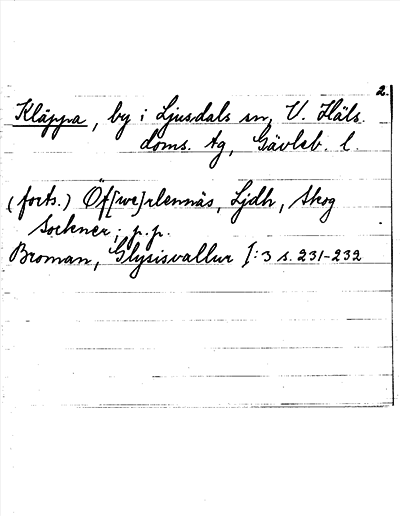 2.
Kläppa, by i Ljusdals sn, V. Häls.
doms. tg, Gävleb. l.
(forts.) Öf[we]rlennäs, Ljdh, Skog
Sockner; p.p.
Broman, Glysisvallur I:3 s. 231-232